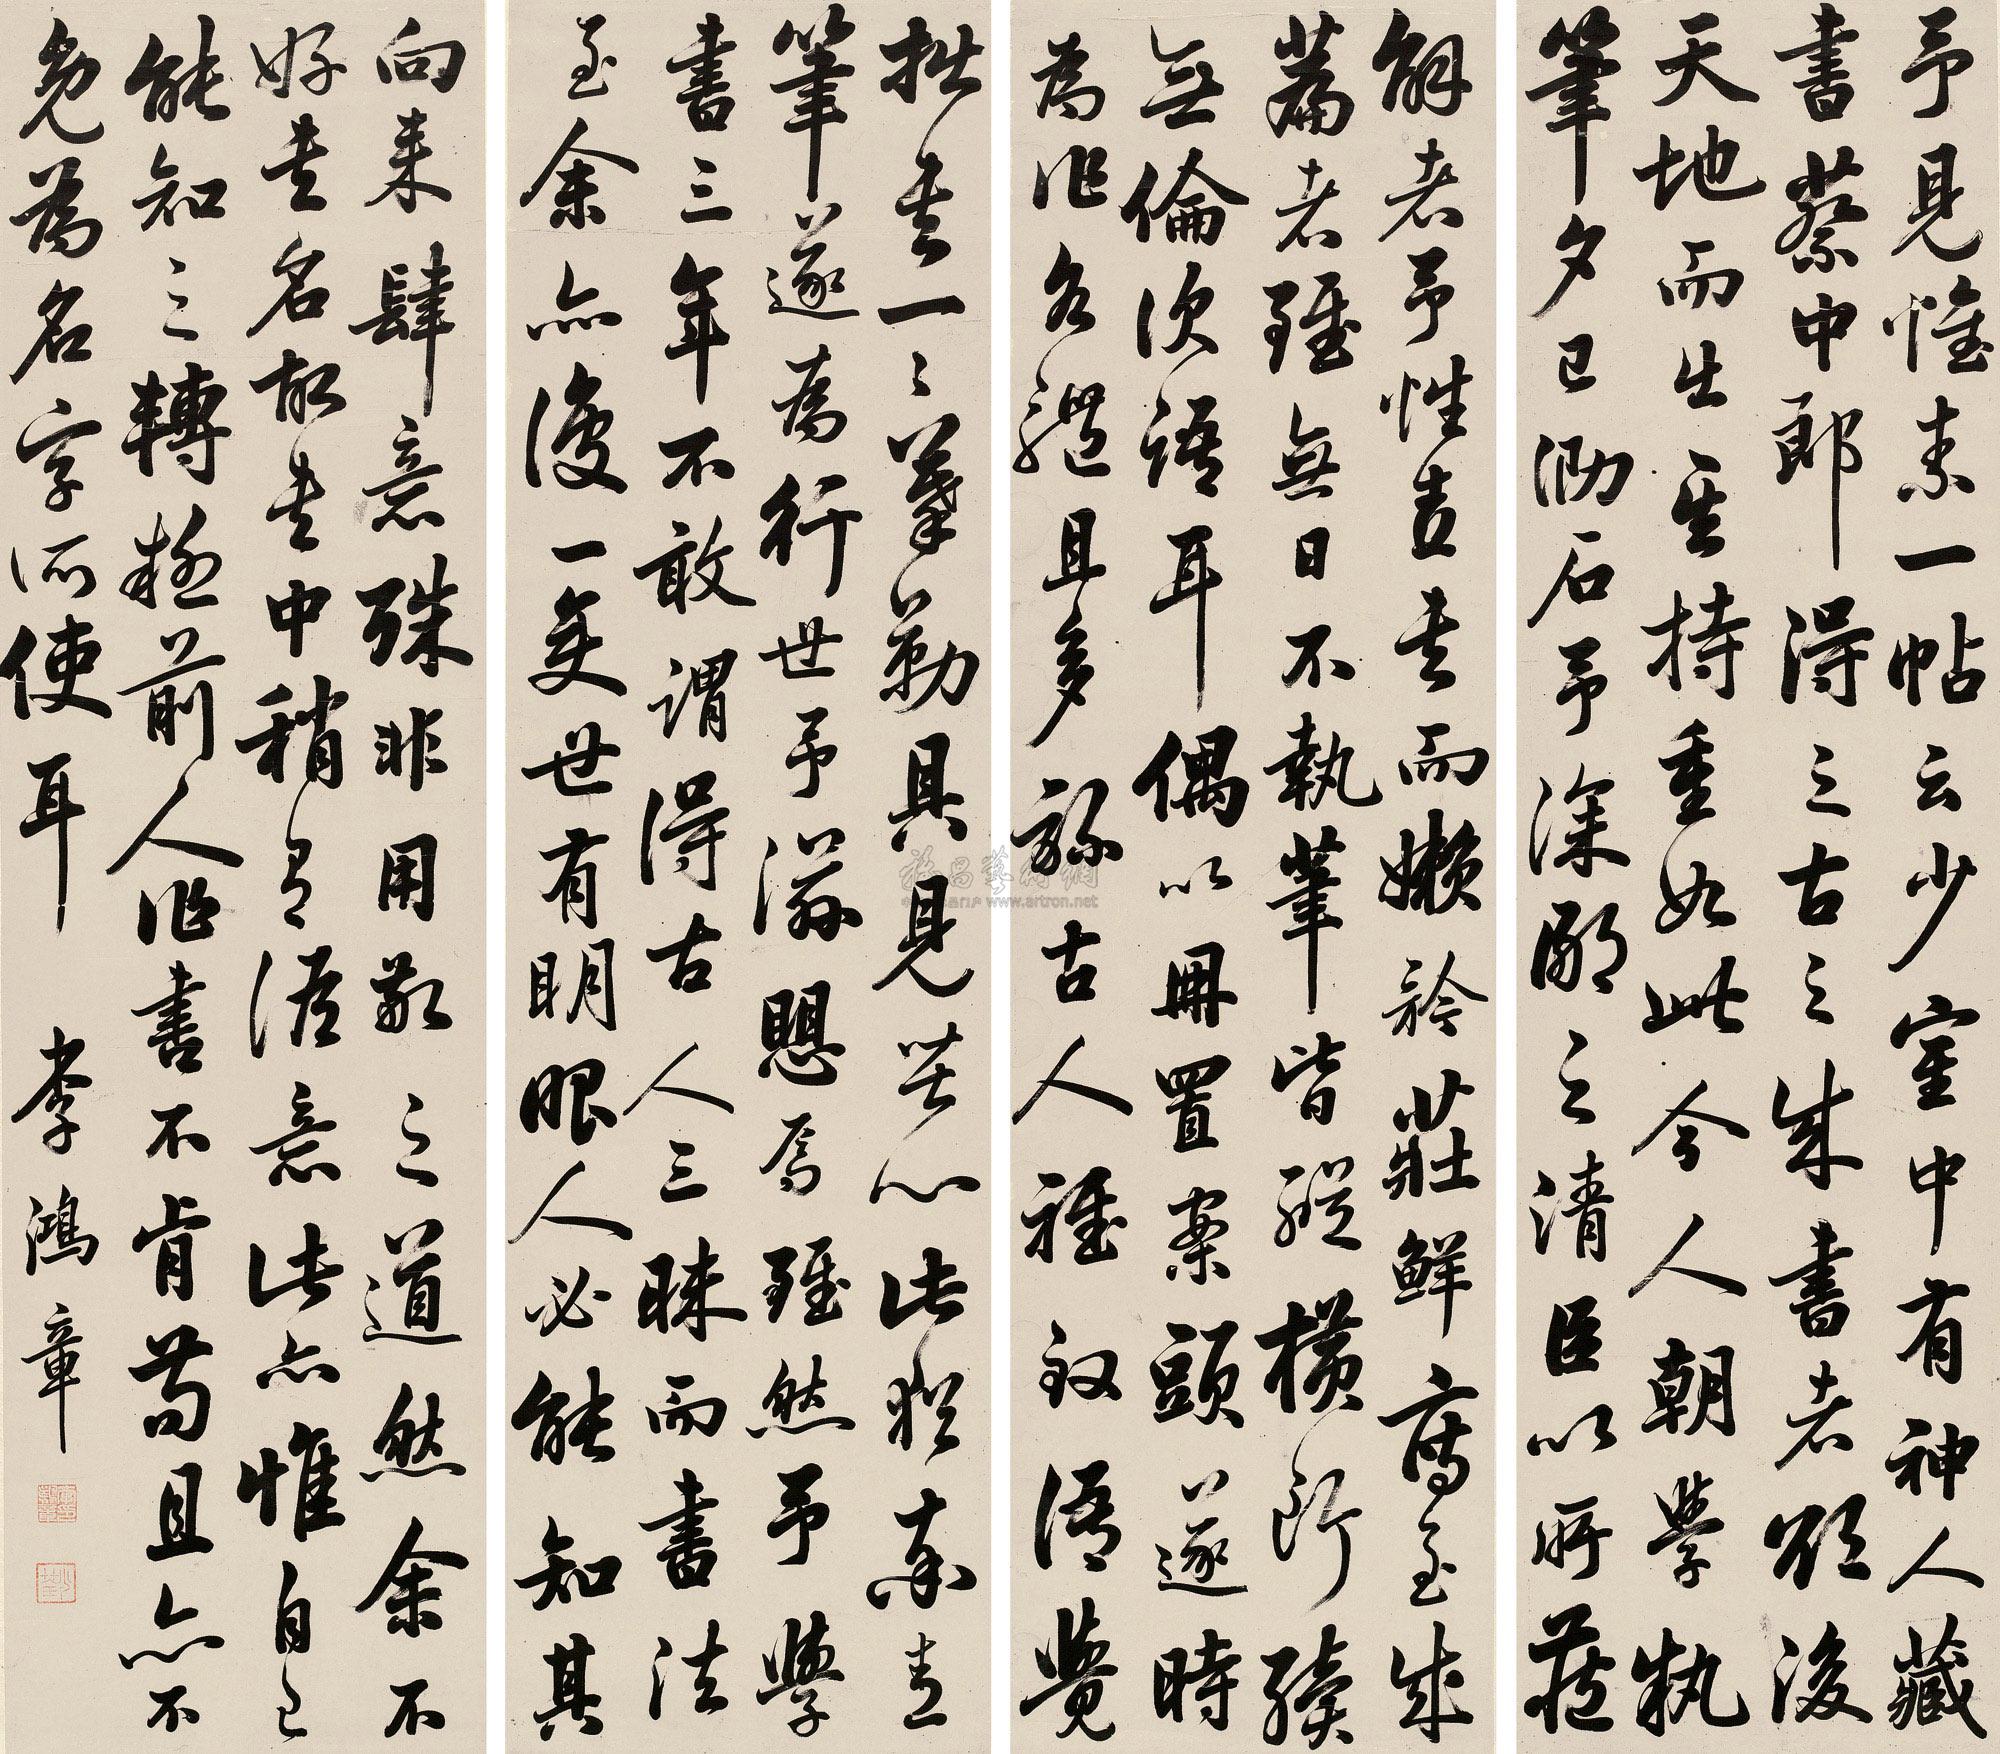 予見懷素一帖云少室中有神人藏
書蔡中郎得之古之成書者欲後
天地而生其持重如此今人朝學執
筆夕已泐石予深鄙之清臣以所藏
解者予性喜書而嬾矜莊鮮寫至成
篇者雖無日不執筆皆縱橫斷續
無倫次語耳偶以冊置案頭遂時
為作各體且多錄古人雅致語覺
拙書一一摹勒具見苦心此猶率意
筆遂為行世予滋愧焉雖然予學
書三年不敢謂得古人三昧而書法
至余亦復一變世有明眼人必能知其
向來肆意殊非用敬之道然余不
好書名故書中稍有淡意此亦惟自己
能知之轉前人作書不肯苟且亦不
免為名字所使耳 李鴻章
www.artron.net